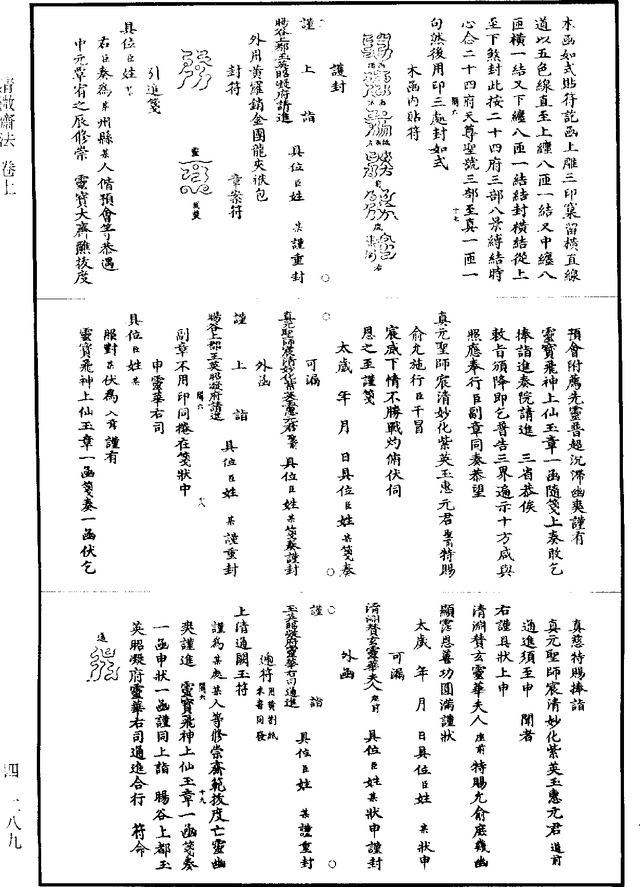 木函如式貼符訖函上雕三印窠留橫直線
道以五色線直至上纏八匝一結又中纏八
匝橫一結又下纏八匝一結結封橫結從上
至下煞封此按二十四府三部八景縛結時
心念二十四府天尊聖號三部至真一匝一
句然後用印三處封如式
木函內貼符
護封
謹 上 詣 具位臣姓 某謹重封
暘谷上都玉英昭凝府請進
外用黃羅銷金團龍夾袱包
封符 章案符
引進箋
具位臣姓某
右臣奏為某州縣某人偕預會等恭遇
中元覃宥之辰修崇 靈寶大齋醮拔度
預會附薦先靈普超沉滯幽爽謹有
靈寶飛神上仙玉章一函隨箋上奏敢乞
捧詣進奏院請進 三省恭俟
敕旨頒降即乞普告三界遍示十方咸與
照應奉行臣副章同奏恭望
真元聖師宸清妙化紫英玉惠元君 特賜
俞允施行臣干冒
宸威下情不勝戰灼俯伏伺
恩之至謹箋
太歲 年 月 日具位臣姓 某箋奏
可漏
真元聖師宸清妙化紫英玉惠元君 具位臣姓某箋奏謹封
外函
謹 上 詣 具位臣姓 某謹重封
暘谷上都玉英昭凝府請進
副章不用印同捲在箋狀中
申靈華右司
具位臣姓某
照對某伏為入意謹有
靈寶飛神上仙玉章一函箋奏一函伏乞
真慈特賜捧詣
真元聖師宸清妙化紫英玉惠元君 進前
通進須至申 聞者
右謹具狀上申
清淵贊玄靈華夫人座前特賜允俞庶幾幽
顯霑恩善功圓滿謹狀
太歲 年 月 日具位臣姓 某狀申
可漏
清淵贊玄靈華夫人座前 具位臣姓某狀申謹封
外函
謹 詣 具位臣姓 某謹重封
玉英昭凝府靈華右司通進
遞符用黃劄紙朱書同發
上清通闕玉符
謹為某處某人等修崇齋範拔度亡靈幽
爽謹進 靈寶飛神上仙玉章一函箋奏
一函申狀一函謹同上詣 暘谷上都玉
英昭凝府靈華右司通進合行 符命
清微齋法 卷上
四—二八九